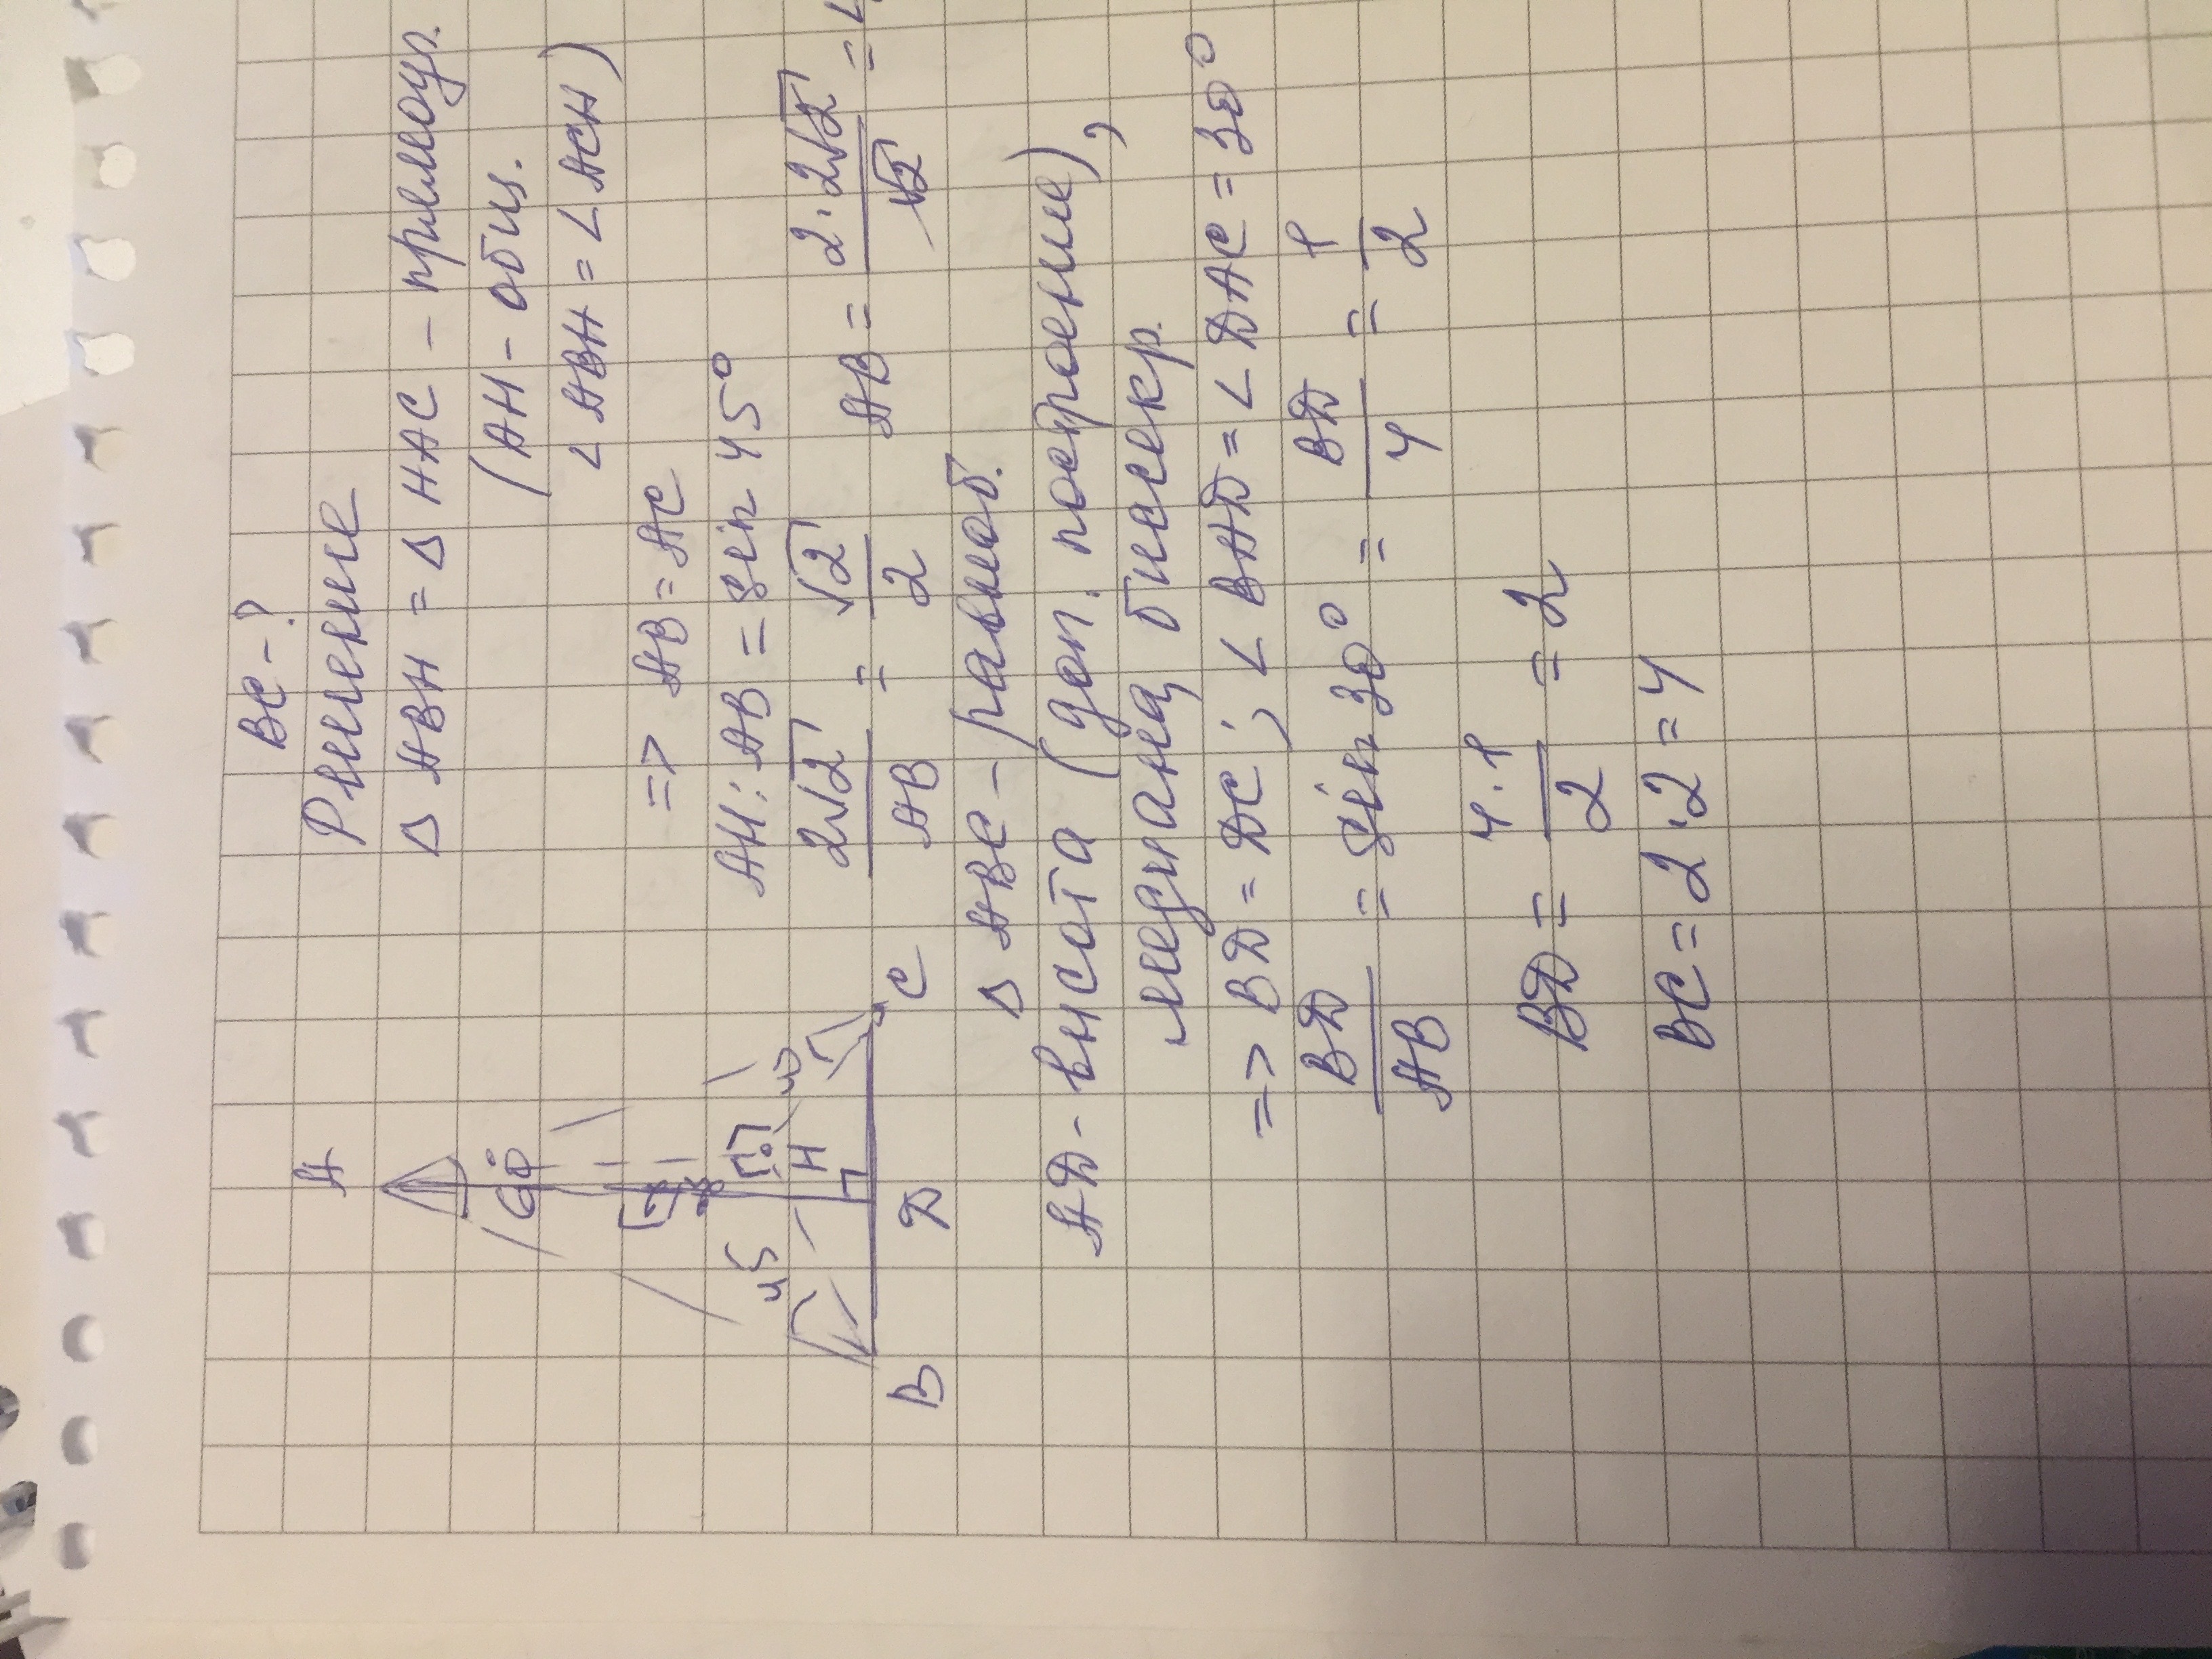 BC - ?
Решение
Δ ABH = Δ HAC - прямоуг.
(AH - общ.
∠ ABH = ∠ ACH)
=> AB = AC
AH : AB = sin 45°
2√2 / AB = √2 / 2 AB = 2 · 2√2 / √2 = 4
A
60°
45
45
H
B Д C
Δ ABC - равноб.
AД - высота (доп. построение),
медиана, биссекр.
=> BД = ДC ; ∠ BAД = ∠ ДAC = 30°
BД / AB = sin 30° = BД / 4 = 1 / 2
BД = 4 · 1 / 2 = 2
BC = 2 · 2 = 4